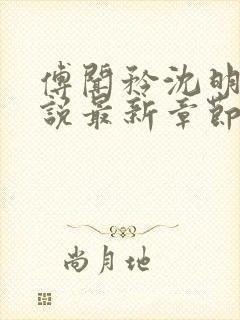 傅聞矜沈明
說最新章節
尚月地